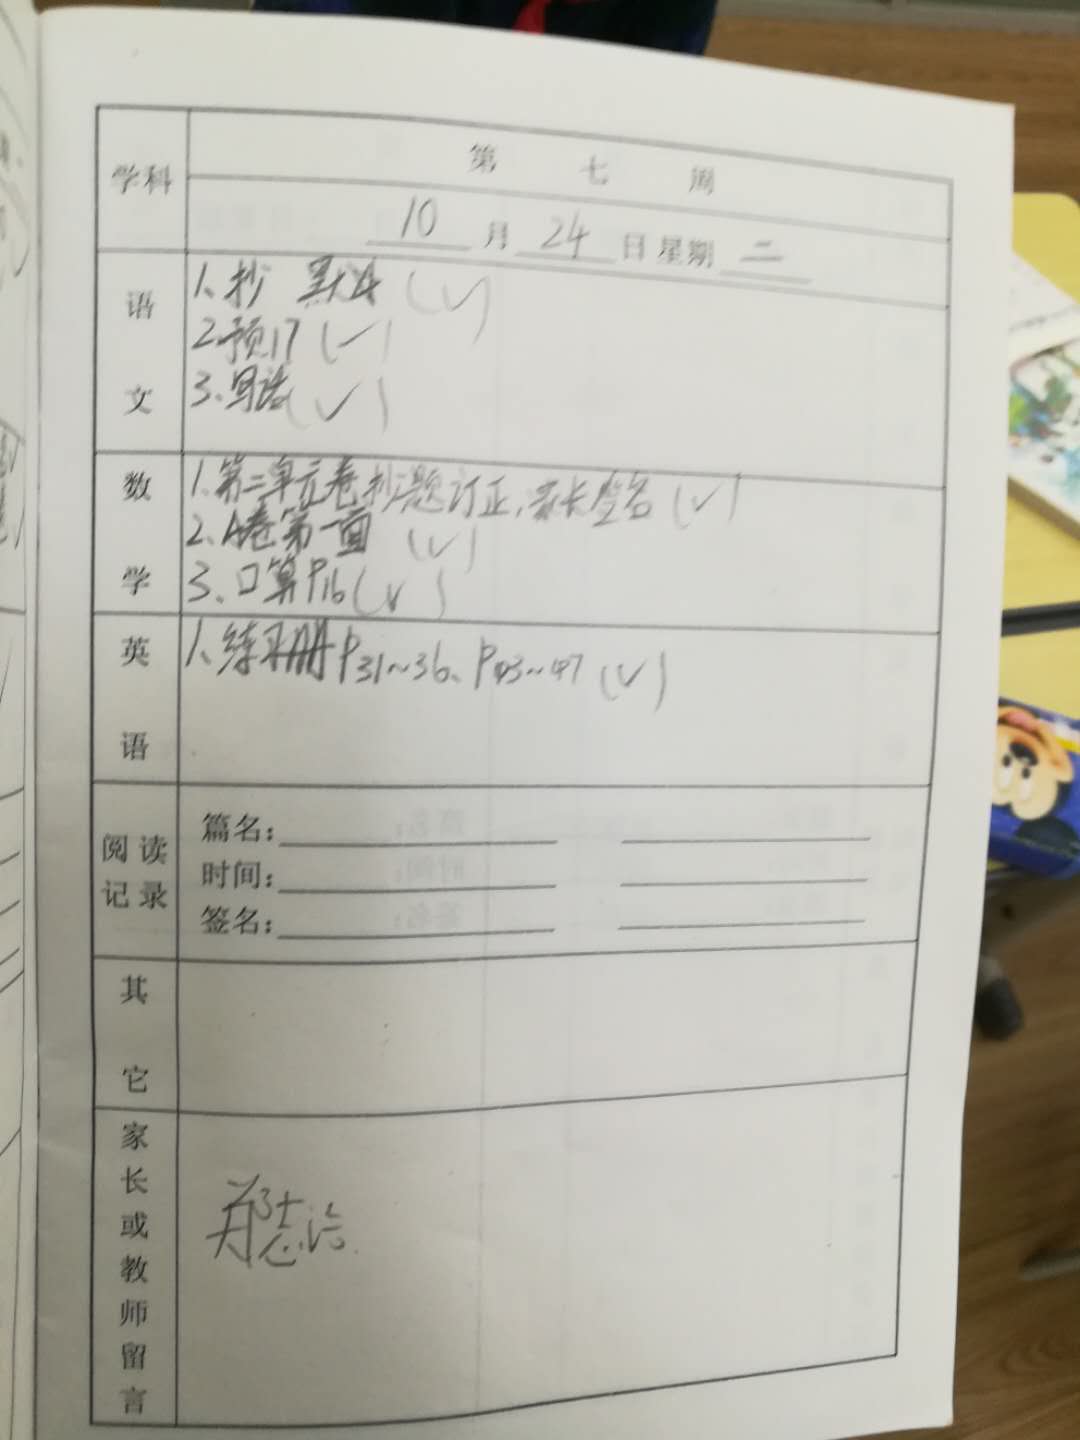 学科
第 七 周
10 月 24 日 星期 二
语文
1、抄 默4 (✓)
2、预17 (✓)
3、写话 (✓)
数学
1、第二单元卷抄题订正,家长签名 (✓)
2、A卷第一面 (✓)
3、口算P16 (✓)
英语
1、练习册P31~36、P43~47 (✓)
阅读记录
篇名:
时间:
签名:
其它
家长或教师留言
郑志浩